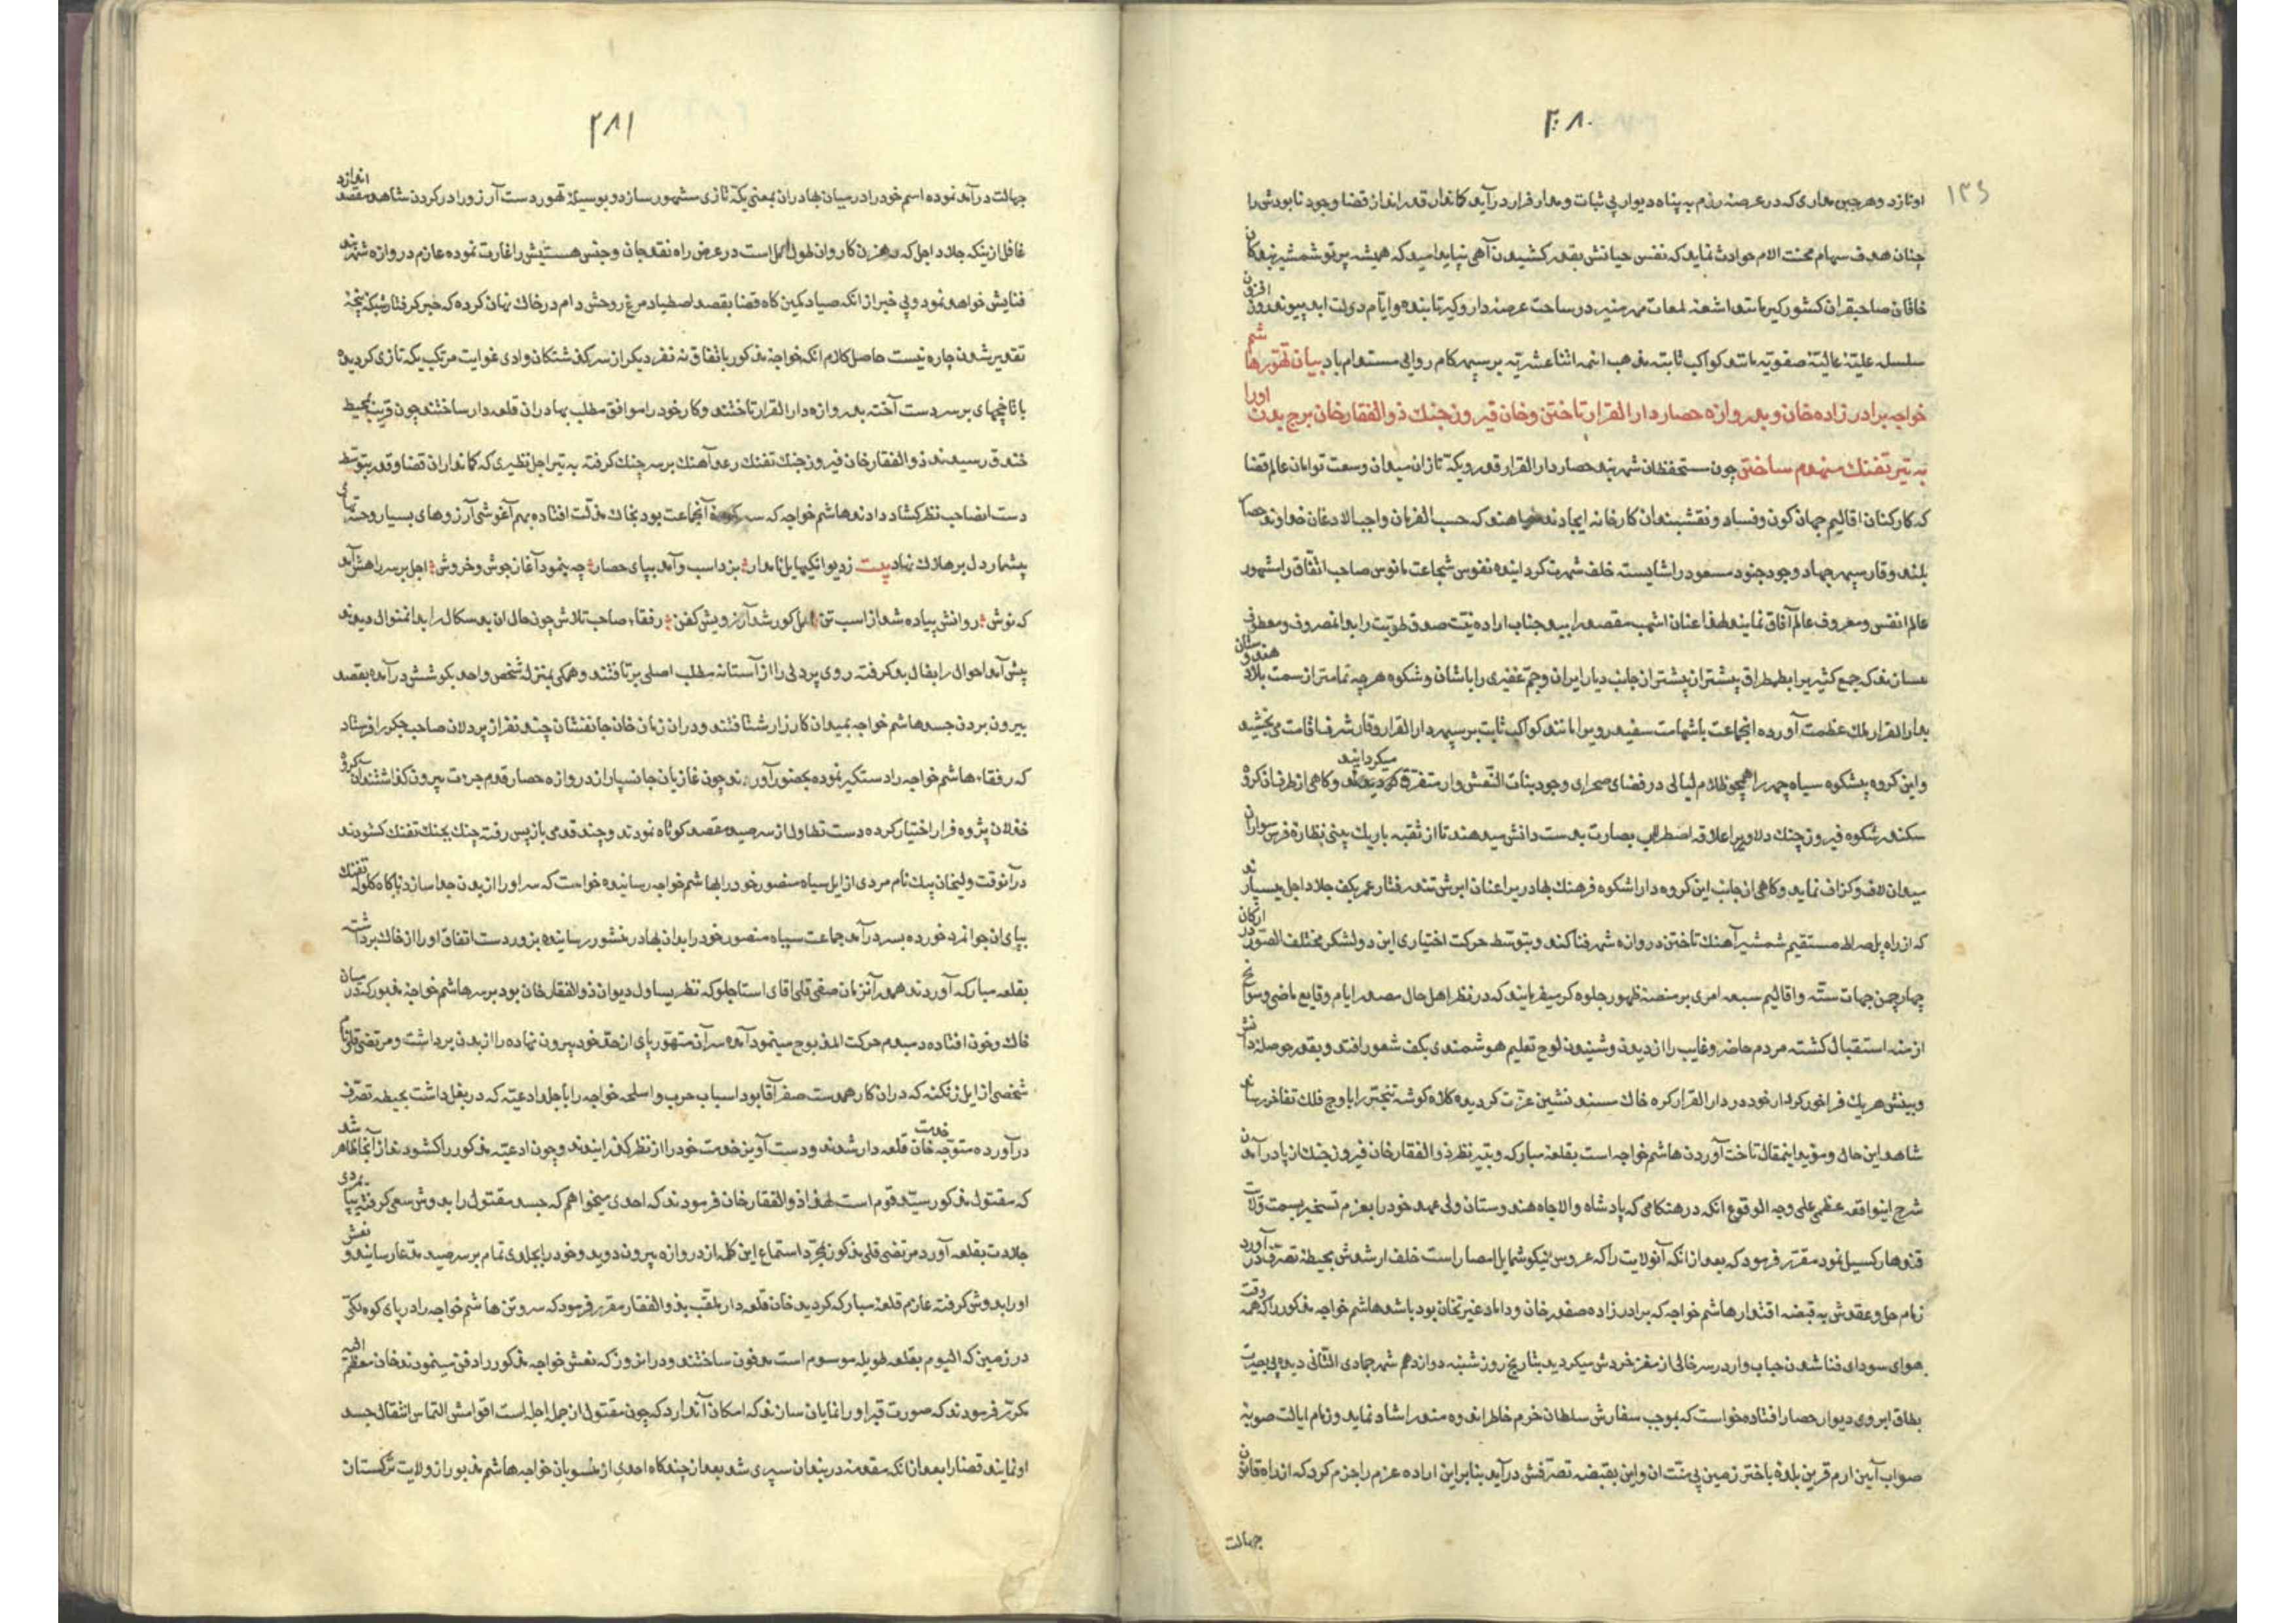 ۲۸۰
۱۳۶
او نازد و هر جبن مداری که در عرصهٔ رزم به پناه دیوار بی ثبات و مدار فرار درآید کماندار قدرانداز قضا وجود نابودش را
چنان هدف سهام محنت الام حوادث نماید که نفس حیاتش بقدر کشیدن آهی نپاید امید که همیشه پرتو شمشیر بندکان
خاقان صاحبقران کشورکیر مانند اشعهٔ لمعات مهر منیر در ساحت عرصهٔ دار وکیر تابنده و ایام دولت ابد پیوند روزافزون
سلسلهٔ علیّهٔ عالیّهٔ صفویّه مانند کواکب ثابتهٔ مذهب ائمهٔ اثنا عشریّه بر سپهر کام روایی مستدام باد بیان تهوّر هاشم
خواجه برادر زاده خان و بدروازه حصار دار القرار تاختن و خان فیروز جنک ذو الفقار خان برج بدن او را
به تیر تفنک منهدم ساختن چون مستحفظان شهربند حصار دار القرار قدر و یکّه تازان میدان وسعت توامان عالم قضا
که کارکنان اقالیم جهان کون و فساد و نقشبندان کارخانه ایجادند میخواهند که حسب الفرمان واجب الاذعان خداوند حصار
بلند وقار سپهر جهاد وجود جنود مسعود را شایسته خلف شهرت کردانیده نفوس شجاعت مانوس صاحب اتفاق را مشهور
عالم انفس و معروف عالم آفاق نمایند لهذا عنان اشهب مقصد را بید جناب اراده نیّت صدق طویّت را بدانصروف و معطوف
میسازند که جمع کثیر را بطمطراق بیشتر از پیشتر از جانب دیار ایران و جمّ غفیری را باشان و شکوه هرچه تمامتر از سمت بلاد هندوستان
بدار القرار ملک عظمت آورده انجماعت باشهامت سفید رو را مانند کواکب ثابت بر سپهر دار القرار وقار شرف اقامت می بخشید
و این کروه بیشکوه سیاه چهره را همچو ظلام لیالی در فضای صحرای وجود بنات النّعش وار متفرّق میکردانید و کاهی از طرف آن کروه
سکندر شکوه فیروز جنک دلاویرا علاقه اصطرلاب بصارت بدست دانش میدهند تا از ثقبه باریک بینی نظاره فرس سواران
میدان لاف و کزاف نماید و کاهی از جانب این کروه دارا شکوه فرهنک بهادریرا عنان ابرش تند رفتار عمر بکف جلاد اجل میسپارند
که از راه پل صراط مستقیم شمشیر آهنک تاختن دروازه شهر فنا کند و بتوسّط حرکت اختیاری این دو لشکر مختلف الصّور در ارکان
چهار چمن جهات ستّه و اقالیم سبعه امری بر منصّهٔ ظهور جلوه کر میفرمایند که در نظر اهل حال مصدر ایام وقایع ماضی و سوانح
ازمنه استقبال کشته مردم حاضر و غایب را از دیدن و شنیدن لوح تعلیم هوشمندی بکف شعور افتد و بقدر حوصله دانش
و بینش هریک فراخور کردار خود در دار القرار کره خاک مسند نشین عزّت کردیده کلاه کوشه تبختر را باوج فلک تفاخر رساند
شاهد این حال و مؤید اینمقال تاخت آوردن هاشم خواجه است بقلعهٔ مبارکه و به تیر نظر ذو الفقار خان فیروز جنک از پا درآمدن
شرح اینواقعه عظمی علی وجه الوقوع انکه در هنکامی که پادشاه والاجاه هندوستان ولی عهد خود را بعزم تسخیر بسمت ولایت
قندهار کسیل نمود مقرّر فرمود که بعد از انکه آنولایت را که عروس نیکو شمایل امصار است خلف ارشدش بحیطهٔ تصرّف درآورد
زمام حل و عقدش به قبضه اقتدار هاشم خواجه که برادرزاده صفدر خان و داماد غیرتخان بود باشد هاشم خواجه مذکور را که همه وقت
هوای سودای فنا شدن حباب وار در سر خالی از مغز خردش میکردید بتاریخ روز شنبه دوازدهم شهر جمادی الثّانی دیده بی بصیرت
بطاق ابروی دیوار حصار افتاده خواست که بموجب سفارش سلطان خرم خاطر اندوه مند را شاد نماید و زمام ایالت صوبهٔ
صواب آیین ارم قرین بلدهٔ باختر زمین بی منّت ان و این بقبضهٔ تصرّفش درآید بنابراین اراده عزم را جزم کرد که از راه قانون
جهالت
۲۸۱
جهالت درآمد نموده اسم خود را در میان بهادران بمعنی یکّه تازی مشهور سازد و بوسیلهٔ تهوّر دست آرزو را در کردن شاهد مقصد اندازد
غافل از ینکه جلاد اجل که رهزن کاروان طول امل است در عرض راه نقد جان و جنس هستیش را غارت نموده عازم دروازه شهربند
فنایش خواهد نمود و بی خبر از انکه صیاد کمین کاه قضا بقصد اصطیاد مرغ روحش دام در خاک نهان کرده که جبر کرفتار شبکهٔ پنجهٔ
تقدیر شدن چاره نیست حاصل کلام انکه خواجه مذکور باتفاق نه نفر دیکر از سرکف شتکان وادی غوایت مرتکب یکه تازی کردیده
با تاخچهای بر سر دست آخته بدروازه دار القرار تاختند و کار خود را موافق مطلب بهادران قلعه دار ساختند چون قریب بمحیط
خندق رسیدند ذو الفقار خان فیروز جنک تفنک رعد آهنک بر سر چنک کرفته به تیر اجل نظیری که کمانداران قضا و قدر بتوسّط
دست انصاحب نظر کشاد دادند هاشم خواجه که سرکرده آنجماعت بود بخاک مذلّت افتاده بهم آغوشی آرزوهای بسیار و حسرتهای
بیشمار دل بر هلاک نهاد بیت ز دیوانکیها یل نامدار بزد اسب و آمد بپای حصار چه بنمود آغاز جوش و خروش اجل بر سر راهش آمد
که نوش روانش پیاده شد از اسب تن امل کور شد آرزویش کفن رفقاء صاحب تلاش چون حال ان بد سکال را بدانمنوال دیدند
پیش آمد احوال را بفال بد کرفته روی پردلی را از آستانه مطلب اصلی برتافتند و همکی بمنزلهٔ شخص واحد بکوشش درآمده بقصد
بیرون بردن جسد هاشم خواجه بمیدان کارزار شتافتند و دران زمان خان جانفشان چند نفر از پردلان صاحب جکر را فرستاد
که رفقاء هاشم خواجه را دستکیر نموده بحضور آورند چون غازیان جان سپار از دروازه حصار قدم جرءت بیرون کذاشتند آن کروه
خذلان پژوه فرار اختیار کرده دست تطاول از سر صید مقصد کوتاه نمودند و چند قدمی بازپس رفته چنک بجنک تفنک کشودند
درانوقت ولیخان بیک نام مردی از ایل سیاه منصور خود را بهاشم خواجه رسانیده خواست که سر او را از بدن جدا سازد ناکاه کلوله تفنک
بپای ان جوانمرد خورده بسر درآمد جماعت سیاه منصور خود را بدان بهادر منشور رسانیده بزور دست اتفاق او را از خاک برداشته
بقلعه مبارکه آوردند همدر آنزمان صفی قلی آقای استاجلو که نظر یساول دیوان ذوالفقار خان بود بر سر هاشم خواجه مذبور که در میان
خاک و خون افتاده دمبدم حرکت المذبوح مینمود آمده سر آن متهوّر پای از حد خود بیرون نهاده را از بدن برداشت و مرتضی قلی نام
شخصی از ایل زنکنه که دران کار همدست صفر آقا بود اسباب حرب و اسلحه خواجه را با جلد ادعیّه که در بغل داشت بحیطه تصرّف
درآورده متوجّه خدمت خان قلعه دار شدند و دست آویز خدمت خود را از نظر کذرانیدند و چون ادعیّه مذکور را کشودند از آنجا ظاهر شد
که مقتول مذکور سیّد قوم است لهذا ذوالفقار خان فرمودند که احدی میخواهم که جسد مقتول را بدوش سعی کرفته بپایمردی
جلادت بقلعه آورد مرتضی قلی مذکور بمجرّد استماع این کلمه از دروازه بیرون دوید و خود را بجلدی تمام بر سر صید مدّعا رسانید و نعش
او را بدوش کرفته عازم قلعهٔ مبارکه کردید خان قلعه دار ملقّب بذوالفقار مقرر فرمود که سر و تن هاشم خواجه را در پای کوه لکّی
در زمین که الیوم بقلعه طویله موسوم است مدفون ساختند و در انروز که نعش خواجه مذکور را دفن مینمودند خان معظّم الیه
مکرّر فرمودند که صورت قبر او را نمایان سازند که امکان آندارد که چون مقتول از جمله اجله است اقوامش التماس انتقال جسد
او نمایند قضا را بعد از انکه مقدمه دربندان سپری شد بعد از چندکاه احدی از منسوبان خواجه هاشم مذبور از ولایت ترکستان